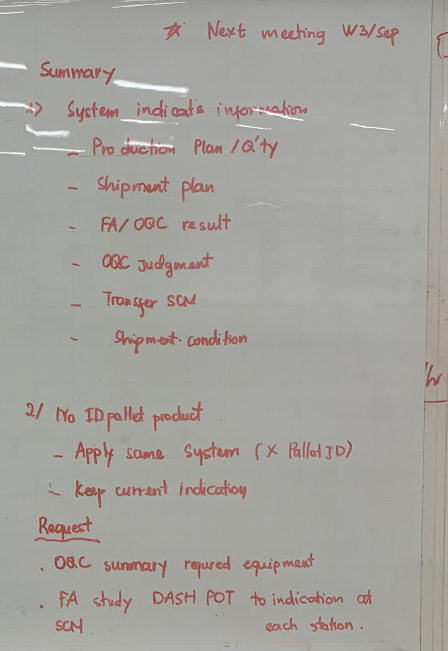 ☆ Next meeting W3/Sep
Summary
1) System indicate information
- Production Plan / Q'ty
- Shipment plan
- FA/OQC result
- OQC Judgment
- Transfer SCM
- Shipment condition
2/ No ID pallet product
- Apply same system (X Pallet ID)
- Keep current indication
Request
. OQC summary requred equipment
. FA study DASH POT to indication at
SCM each station.
hr